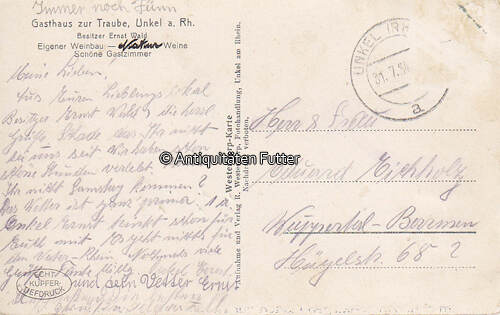 Immer noch
Gasthaus zur Traube, Unkel a. Rh.
Besitzer Ernst Wald
Eigener Weinbau — Natur Weine
Schöne Gastzimmer
Meine Lieben,
Aus Eurem Lieblingslokal
Besitzer Ernst Wald, die herzl.
Grüße. Schade dass Ihr nicht
bei uns seit. Wir haben schon
schöne Stunden verlebt.
Ihr nicht Samstag kommen?
Das Wetter ist ganz prima.
Onkel Ernst trinkt schon für
Euch mit.
den Vater Rhein. Nochmals viele
Grüße
und sein Vetter Ernst
ECHT
KUPFER-
TIEFDRUCK
Westendorp-Karte
Aufnahme und Verlag R. Westendorp, Fotohandlung, Unkel am Rhein.
Nachdruck verboten.
© Antiquitäten Futter
UNKEL (RH
31.7.5
a
Herr & Frau
Eduard Eichholz
Wuppertal-Barmen
Hügelstr. 68?